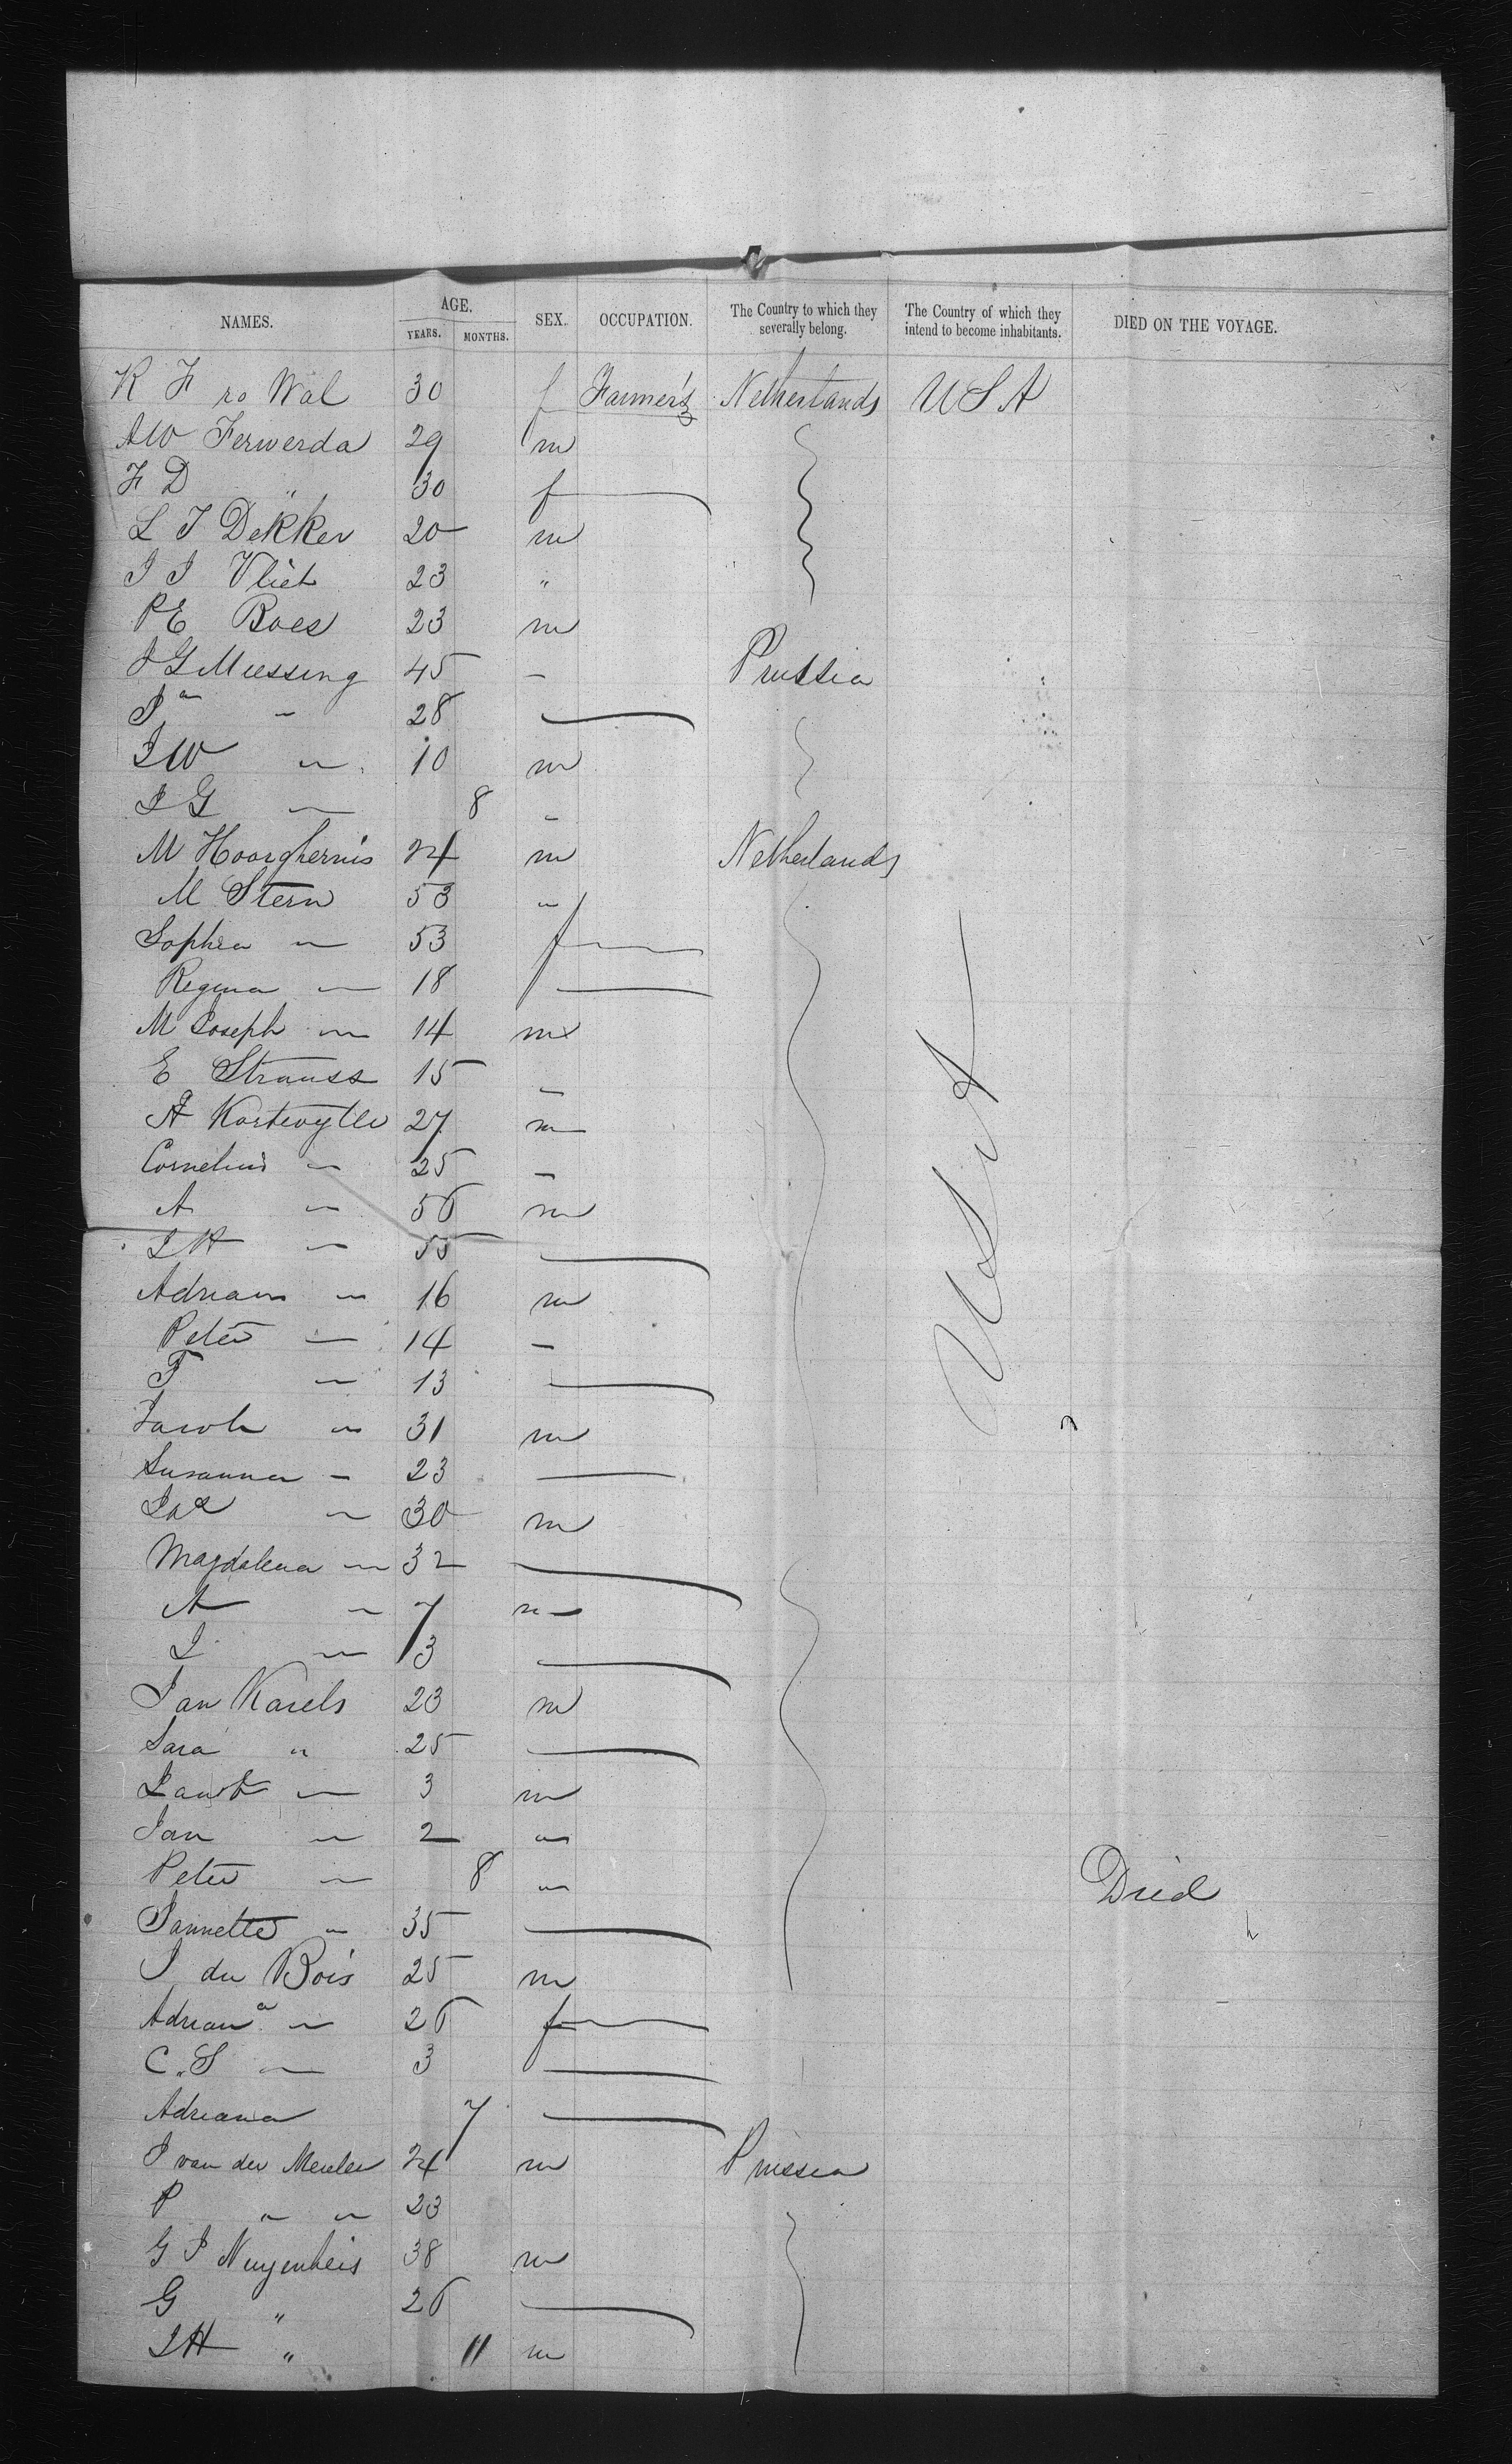 NAMES. AGE. YEARS. MONTHS. SEX. OCCUPATION. The Country to which they severally belong. The Country of which they intend to become inhabitants. DIED ON THE VOYAGE.
K F ro Wal 30 f Farmers Netherlands U S A
AW Ferwerda 29 m
F D " 30 f
L J Dekker 20 m
J J Vliet 23 "
P E Boes 23 m
J G Muessing 45 - Prussia
J a - 28
J W " 10 m
J G — 8 "
M Hoorghernis 24 m Netherlands
M Stern 53 "
Sophia " 53 f
Regina — 18 f
M Joseph " 14 m
E Strauss 15 "
A 27 m
Cornelius " 25 "
A " 56 m
J H " 55
Adriaan " 16 m
Peter — 14 —
F " 13
Jacob " 31 m
Susanna - 23
Jos " 30 m
Magdalena " 32
A " 7 m
J " 3
Jan Karels 23 m
Sara " 25
Jacob — 3 m
Jan " 2 "
Peter — 8 " Died
Jannette " 35
J du Bois 25 m
Adriana " 26 f
C. S — 3
Adriana 7
J van der Meulen 24 m Prussia
P " " 23
G J Nuyenheis 38 m
G " 26
J H " 11 m
U S A